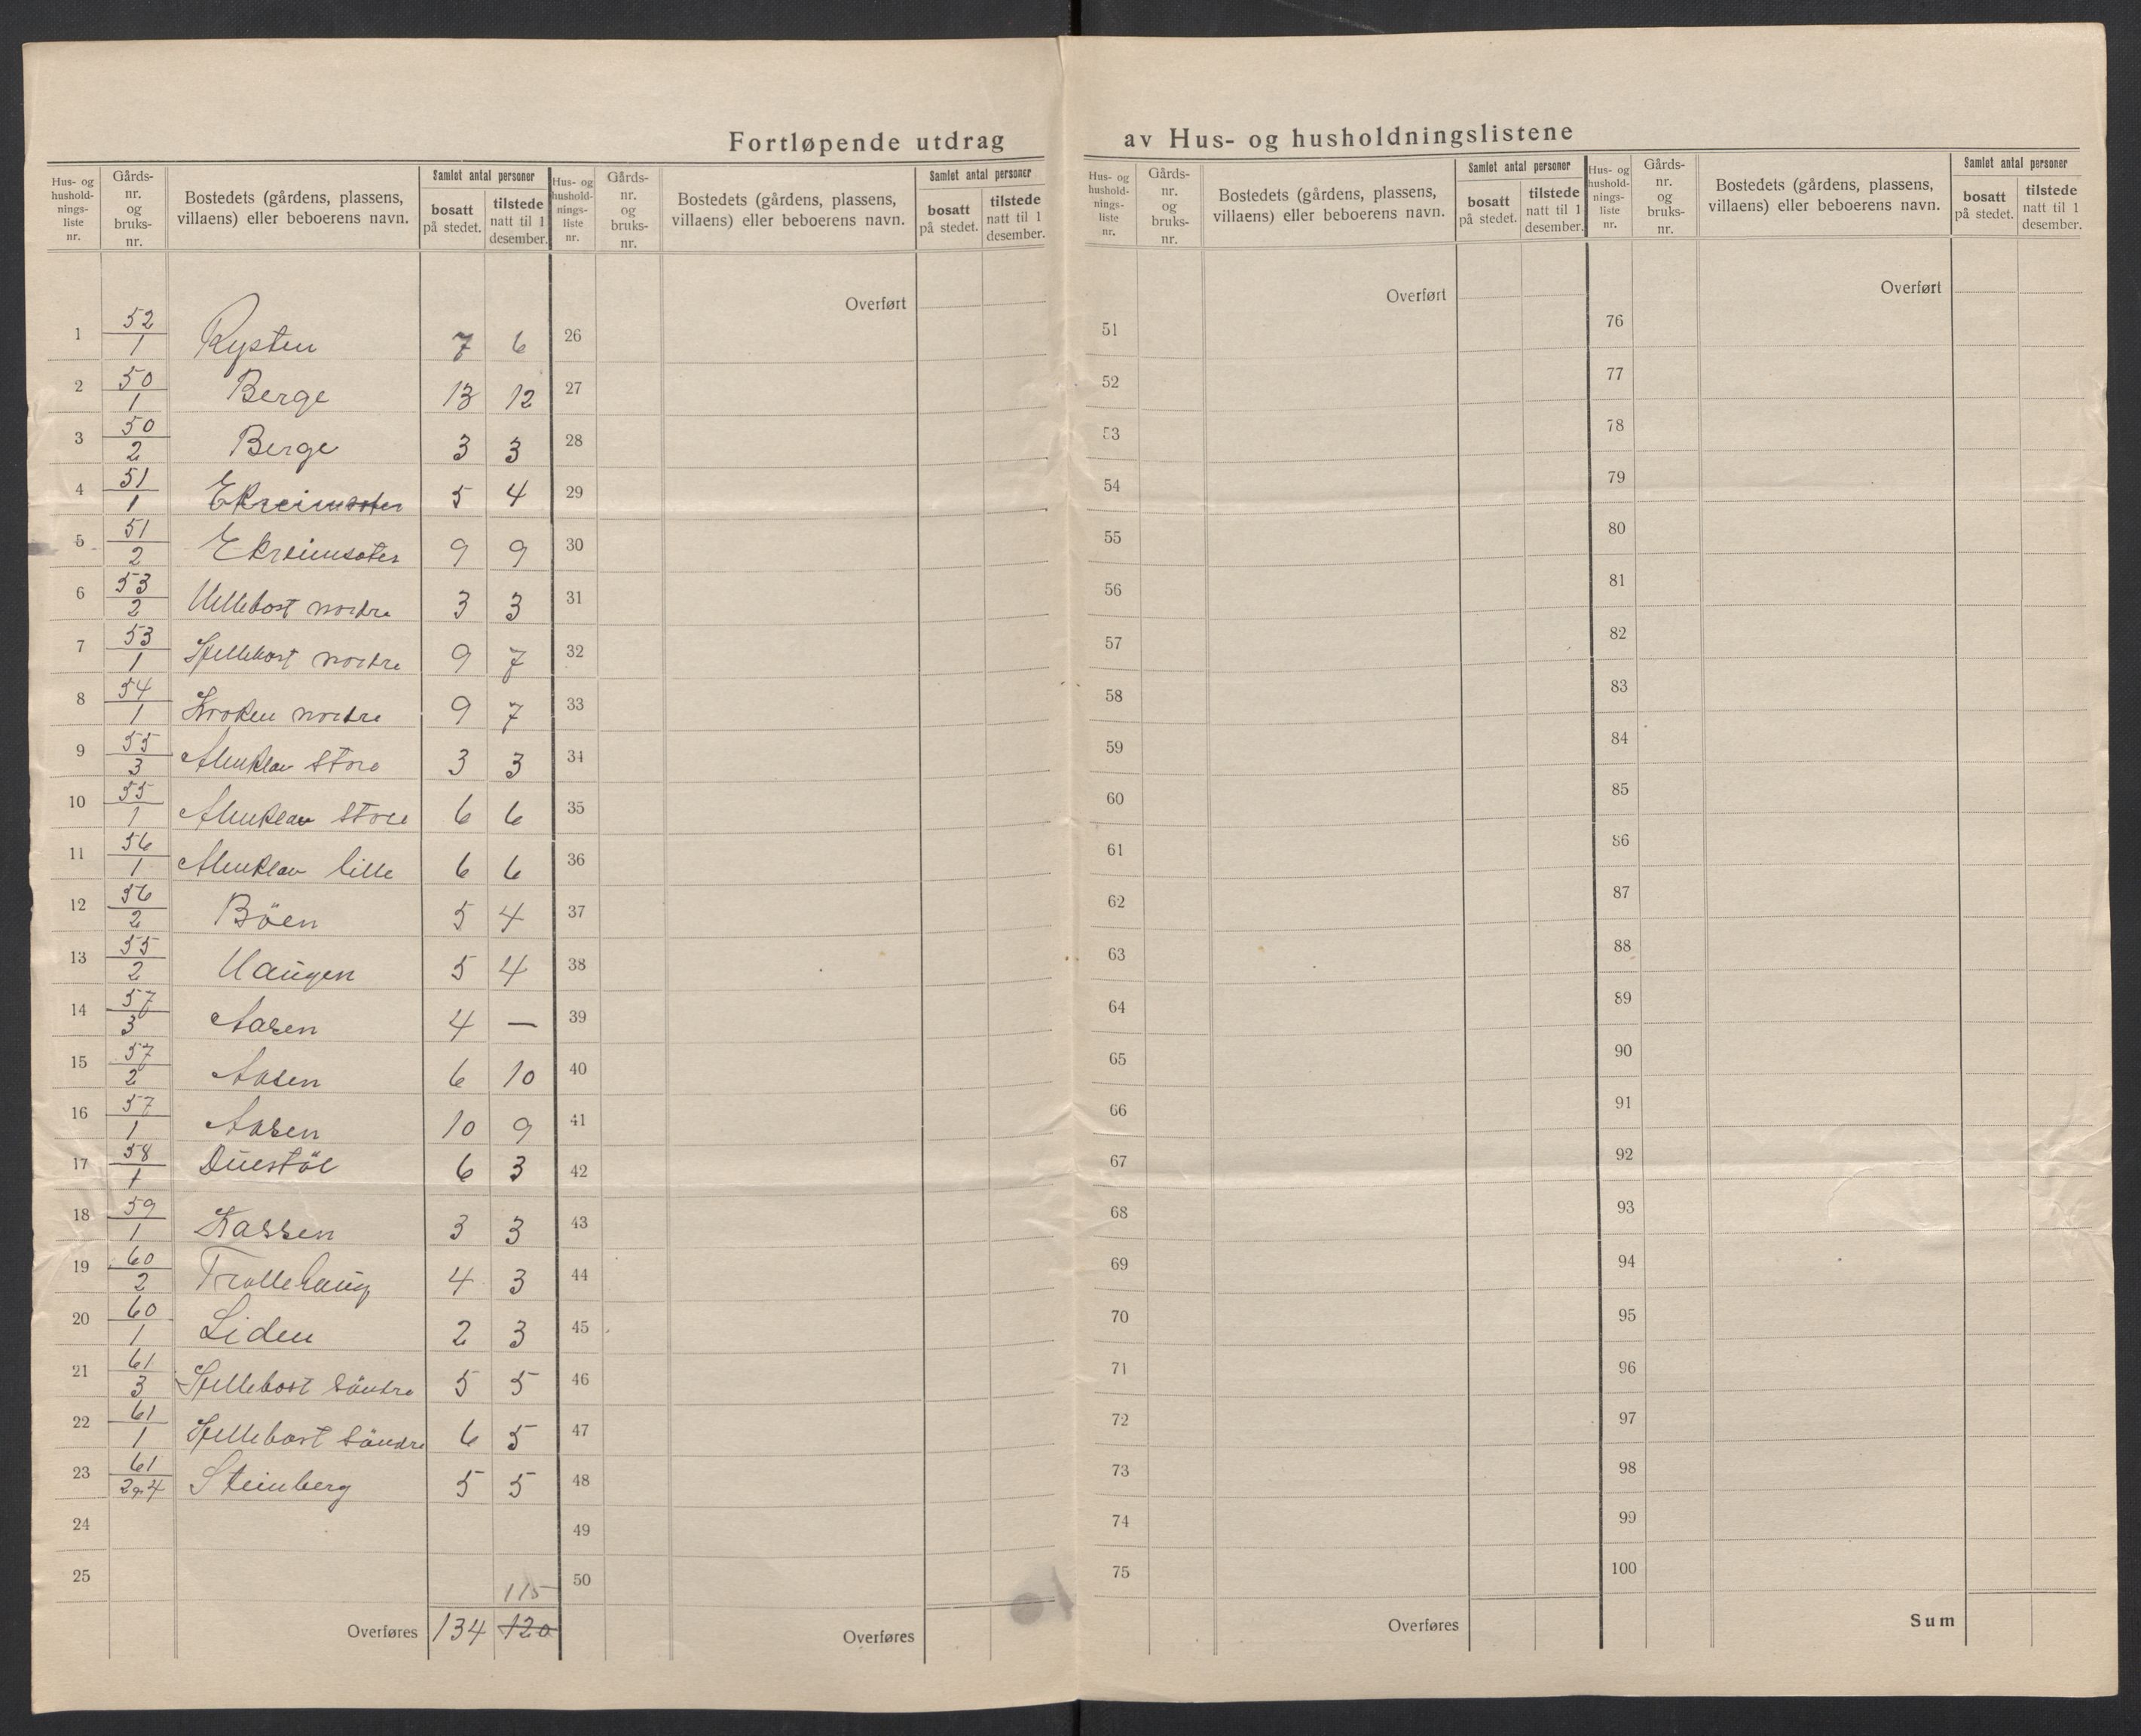 Fortløpende utdrag av Hus- og husholdningslistene
Hus- og hushold- nings- liste nr. | Gårds- nr. og bruks- nr. | Bostedets (gårdens, plassens, villaens) eller beboerens navn. | Samlet antal personer | bosatt på stedet. | tilstede natt til 1 desember.
Hus- og hushold- nings- liste nr. | Gårds- nr. og bruks- nr. | Bostedets (gårdens, plassens, villaens) eller beboerens navn. | Samlet antal personer | bosatt på stedet. | tilstede natt til 1 desember.
Hus- og hushold- nings- liste nr. | Gårds- nr. og bruks- nr. | Bostedets (gårdens, plassens, villaens) eller beboerens navn. | Samlet antal personer | bosatt på stedet. | tilstede natt til 1 desember.
Hus- og hushold- nings- liste nr. | Gårds- nr. og bruks- nr. | Bostedets (gårdens, plassens, villaens) eller beboerens navn. | Samlet antal personer | bosatt på stedet. | tilstede natt til 1 desember.
1 52/1 Rysten 7 6
2 50/1 Berge 13 12
3 50/2 Berge 3 3
4 51/1 Ekreimsæter 5 4
5 51/2 Ekreimsæter 9 9
6 53/2 Hellebost nordre 3 3
7 53/1 Hellebost nordre 9 7
8 54/1 Kroken nordre 9 7
9 55/3 Almklov Store 3 3
10 55/1 Almklov Store 6 6
11 56/1 Almklov lille 6 6
12 56/2 Böen 5 4
13 55/2 Haugen 5 4
14 57/3 Aasen 4 —
15 57/2 Aasen 6 10
16 57/1 Aasen 10 9
17 58/1 Duestöl 6 3
18 59/1 Kassen 3 3
19 60/2 Trollehaug 4 3
20 60/1 Liden 2 3
21 61/3 Hellebost Söndre 5 5
22 61/1 Hellebost Söndre 6 5
23 61/2 og 4 Steinberg 5 5
24
25 115
Overføres 134 120
Overført
26
27
28
29
30
31
32
33
34
35
36
37
38
39
40
41
42
43
44
45
46
47
48
49
50
Overføres
Overført
51
52
53
54
55
56
57
58
59
60
61
62
63
64
65
66
67
68
69
70
71
72
73
74
75
Overføres
Overført
76
77
78
79
80
81
82
83
84
85
86
87
88
89
90
91
92
93
94
95
96
97
98
99
100
Sum